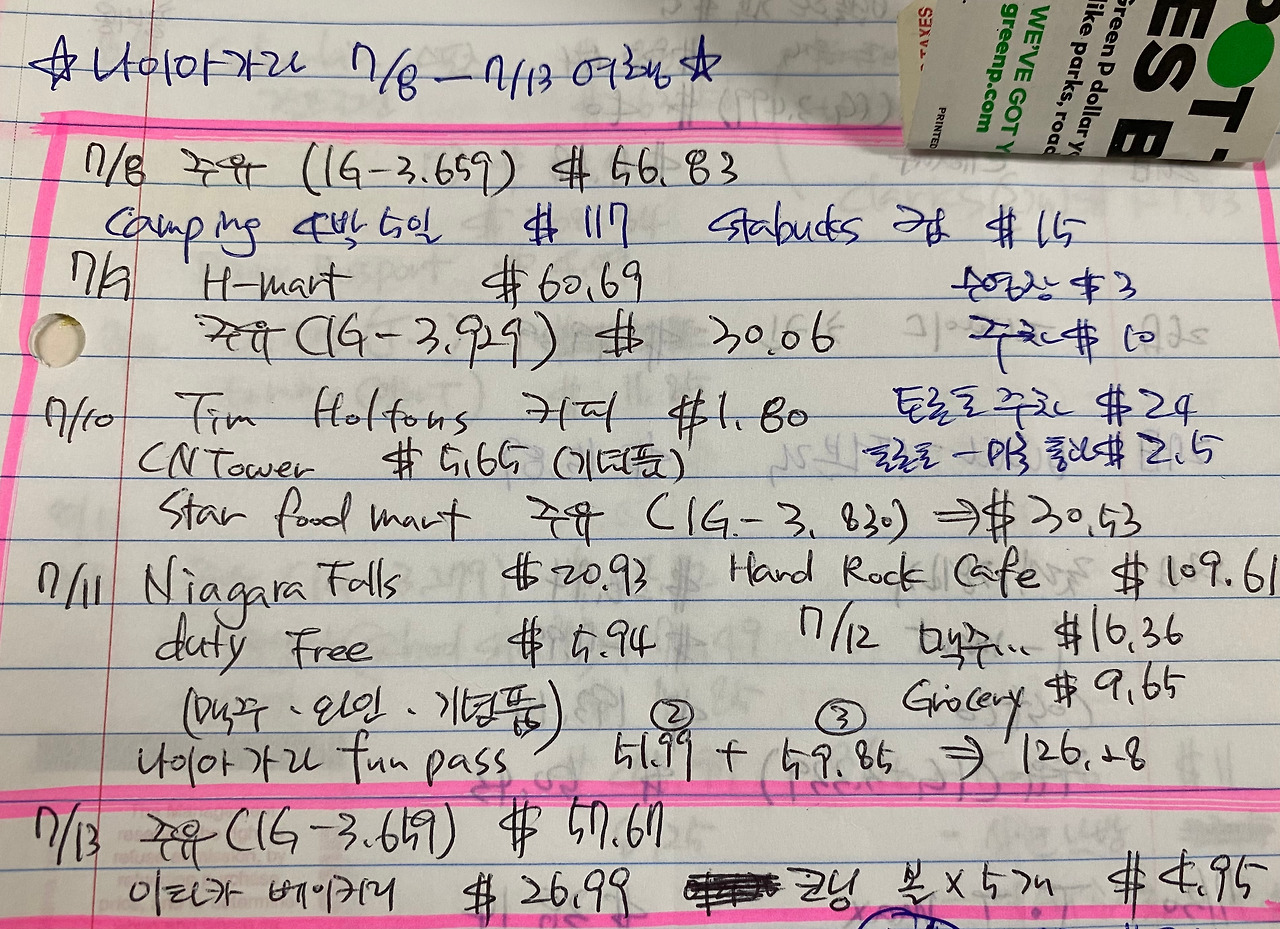 ☆ 나이아가라 7/8 - 7/13 여행 ☆
7/8 주유 (1G-3.659) $ 56.83
Camping 4박 5일 $ 117 Stabucks 컵 $ 15
7/9 H-mart $ 60.69 수영장 $ 3
주유 (1G-3.929) $ 30.06 주차 $ 10
7/10 Tim Holtons 커피 $1.80 토론토 주차 $ 24
CN Tower $ 5.65 (기념품) 토론토 - 미국 통과 $ 2.5
Star food mart 주유 (1G-3.830) ⇒ $ 30.53
7/11 Niagara Falls $ 20.93 Hard Rock Cafe $ 109.61
duty Free $ 5.94 7/12 맥주... $ 16.36
(맥주 · 와인 · 기념품) Grocery $ 9.65
② ③
나이아가라 fun pass 51.99 + 59.85 ⇒ 126.28
7/13 주유 (1G-3.659) $ 57.67
이타카 베이커리 $ 26.99 코닝 볼 x 5개 $ 4.95
POT
EST B
Green P dollar
like parks, road
WE'VE GOT
greenp.com
PRINTED